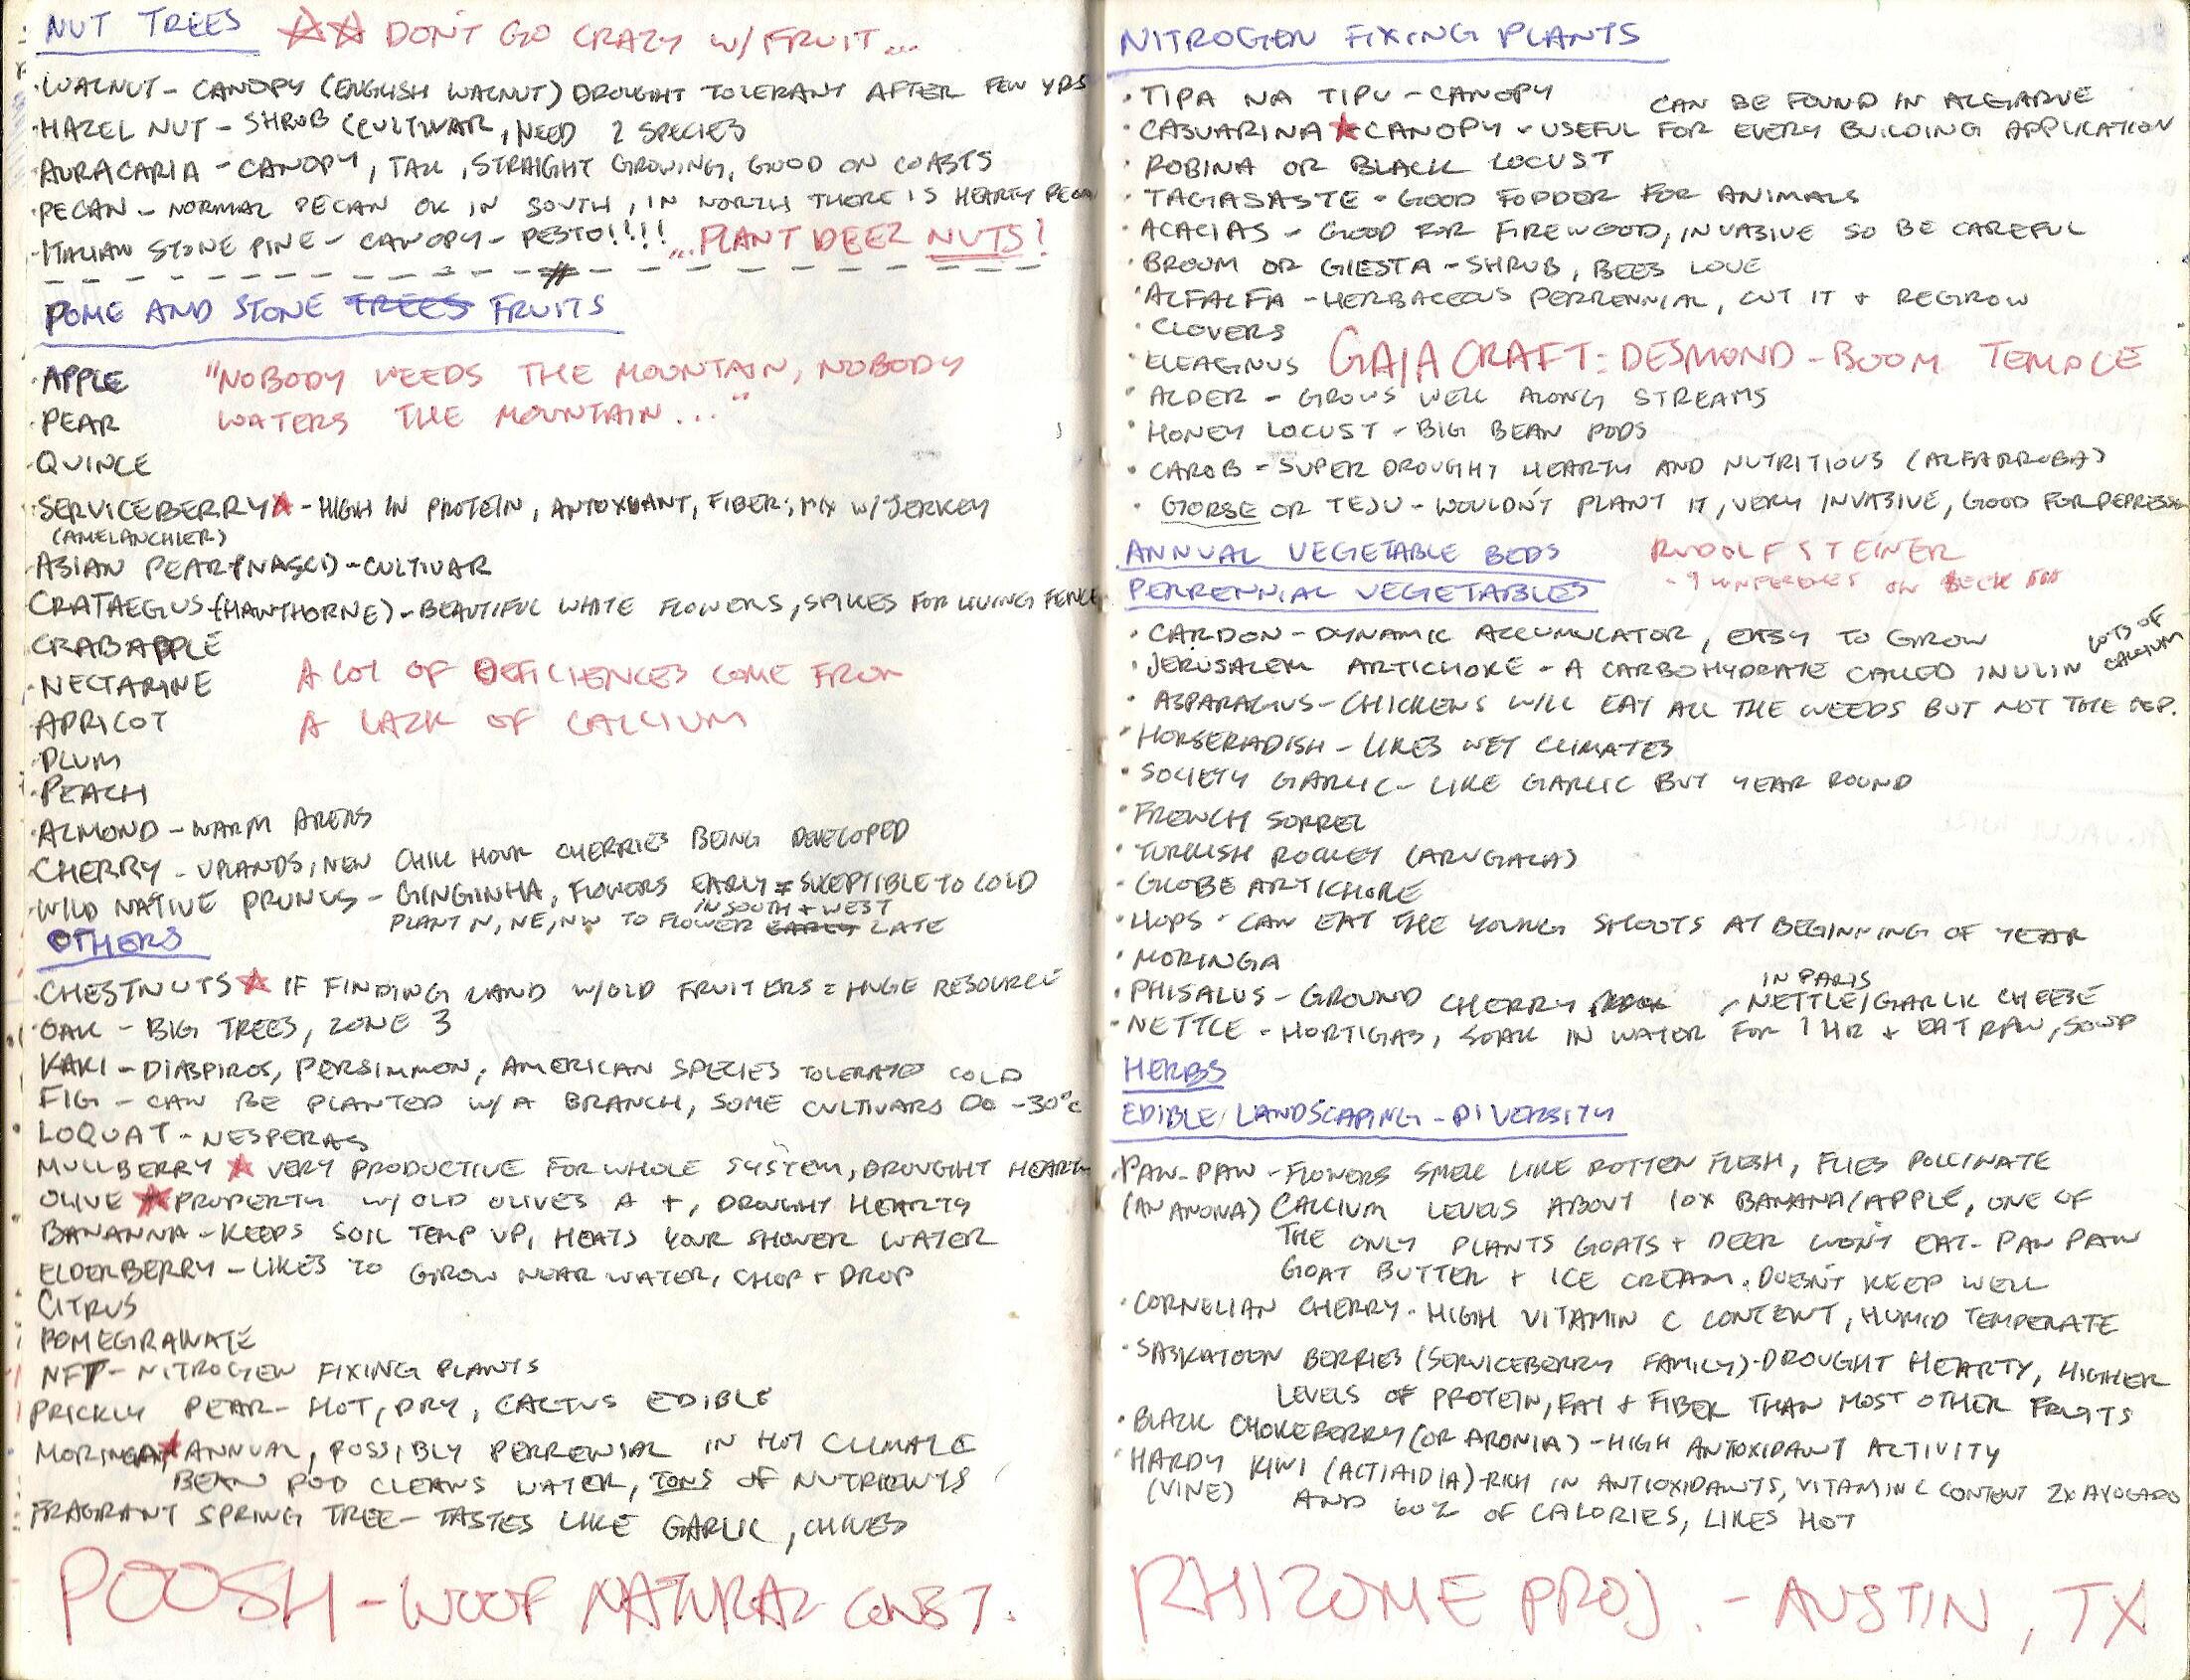 NUT TREES ☆☆ DON'T GO CRAZY W/ FRUIT...
·WALNUT - CANOPY (ENGLISH WALNUT) DROUGHT TOLERANT AFTER FEW YRS
·HAZEL NUT - SHRUB (CULTIVAR, NEED 2 SPECIES
·AURACARIA - CANOPY, TALL, STRAIGHT GROWING, GOOD ON COASTS
·PECAN - NORMAL PECAN OK IN SOUTH, IN NORTH THERE IS HEARTY PECAN
·ITALIAN STONE PINE - CANOPY - PESTO!!!! ...PLANT DEEZ NUTS!
POME AND STONE TREES FRUITS
·APPLE "NOBODY WEEDS THE MOUNTAIN, NOBODY
·PEAR WATERS THE MOUNTAIN..."
·QUINCE
·SERVICEBERRY☆ - HIGH IN PROTEIN, ANTOXIDANT, FIBER; MIX W/ JERKEY
(AMELANCHIER)
·ASIAN PEAR (NASCI) - CULTIVAR
CRATAEGUS (HAWTHORNE) - BEAUTIFUL WHITE FLOWERS, SPIKES FOR LIVING FENCE
CRABAPPLE
·NECTARINE A LOT OF DEFICIENCES COME FROM
·APRICOT A LACK OF CALCIUM
·PLUM
·PEACH
·ALMOND - WARM AREAS
·CHERRY - UPLANDS, NEW CHILL HOUR CHERRIES BEING DEVELOPED
·WILD NATIVE PRUNUS - GINGINHA, FLOWERS EARLY = SUCEPTIBLE TO COLD
IN SOUTH + WEST
PLANT N, NE, NW TO FLOWER EARLY LATE
OTHERS
·CHESTNUTS ☆ IF FINDING LAND W/ OLD FRUITERS = HUGE RESOURCE
·OAK - BIG TREES, ZONE 3
KAKI - DIASPIROS, PERSIMMON, AMERICAN SPECIES TOLERATES COLD
FIG - CAN BE PLANTED W/ A BRANCH, SOME CULTIVARS DO -30°C
·LOQUAT - NESPERAS
MULLBERRY ☆ VERY PRODUCTIVE FOR WHOLE SYSTEM, DROUGHT HEARTY
OLIVE ☆ PROPERTY W/ OLD OLIVES A +, DROUGHT HEARTY
·BANANNA - KEEPS SOIL TEMP UP, HEATS YOUR SHOWER WATER
ELDERBERRY - LIKES TO GROW NEAR WATER, CHOP + DROP
·CITRUS
POMEGRANATE
NFT - NITROGEN FIXING PLANTS
PRICKLY PEAR - HOT, DRY, CACTUS EDIBLE
MORINGA☆ ANNUAL, POSSIBLY PERRENIAL IN HOT CLIMATE
BEAN POD CLEANS WATER, TONS OF NUTRIENTS
FRAGRANT SPRING TREE - TASTES LIKE GARLIC, CHIVES
POOSH - WOOF NATURAL CONST.
NITROGEN FIXING PLANTS
·TIPA NA TIPU - CANOPY CAN BE FOUND IN ALGARVE
·CASUARINA ☆ CANOPY - USEFUL FOR EVERY BUILDING APPLICATION
·ROBINA OR BLACK LOCUST
·TAGASASTE - GOOD FODDER FOR ANIMALS
·ACACIAS - GOOD FOR FIREWOOD, INVASIVE SO BE CAREFUL
·BROUM OR GIESTA - SHRUB, BEES LOVE
·ALFALFA - HERBACEOUS PERRENNIAL, CUT IT + REGROW
·CLOVERS
·ELEAGNUS GAIACRAFT: DESMOND - BOOM TEMPLE
·ALDER - GROWS WELL ALONG STREAMS
·HONEY LOCUST - BIG BEAN PODS
·CAROB - SUPER DROUGHT HEARTY AND NUTRITIOUS (ALFARROBA)
·GORSE OR TEJU - WOULDN'T PLANT IT, VERY INVASIVE, GOOD FOR DEPRESSION
ANNUAL VEGETABLE BEDS RUDOLF STEINER
PERRENNIAL VEGETABLES - 9 CONFERENCES ON
·CARDON - DYNAMIC ACCUMULATOR, EASY TO GROW
·JERUSALEM ARTICHOKE - A CARBOHYDRATE CALLED INULIN LOTS OF CALCIUM
·ASPARAGUS - CHICKENS WILL EAT ALL THE WEEDS BUT NOT THE ASP.
·HORSERADISH - LIKES WET CLIMATES
·SOCIETY GARLIC - LIKE GARLIC BUT YEAR ROUND
·FRENCH SORREL
·TURKISH ROCKET (ARUGALA)
·GLOBE ARTICHOKE
·HOPS - CAN EAT THE YOUNG SHOOTS AT BEGINNING OF YEAR
·MORINGA
·PHISALUS - GROUND CHERRY , IN PARIS NETTLE/GARLIC CHEESE
·NETTLE - HORTIGAS, SOAK IN WATER FOR 1 HR + EAT RAW, SOUP
HERBS
EDIBLE LANDSCAPING - DIVERSITY
·PAW-PAW - FLOWERS SMELL LIKE ROTTEN FLESH, FLIES POLLINATE
(AN ANONA) CALCIUM LEVELS ABOUT 10X BANANA/APPLE, ONE OF
THE ONLY PLANTS GOATS + DEER WON'T EAT - PAW PAW
GOAT BUTTER + ICE CREAM. DOESN'T KEEP WELL
·CORNELIAN CHERRY - HIGH VITAMIN C CONTENT, HUMID TEMPERATE
·SASKATOON BERRIES (SERVICEBERRY FAMILY) - DROUGHT HEARTY, HIGHER
LEVELS OF PROTEIN, FAT + FIBER THAN MOST OTHER FRUITS
·BLACK CHOKEBERRY (OR ARONIA) - HIGH ANTOXIDANT ACTIVITY
·HARDY KIWI (ACTIAIDIA) - RICH IN ANTIOXIDANTS, VITAMIN C CONTENT 2X AVOCADO
(VINE) AND 60% OF CALORIES, LIKES HOT
RHIZOME PROJ. - AUSTIN, TX